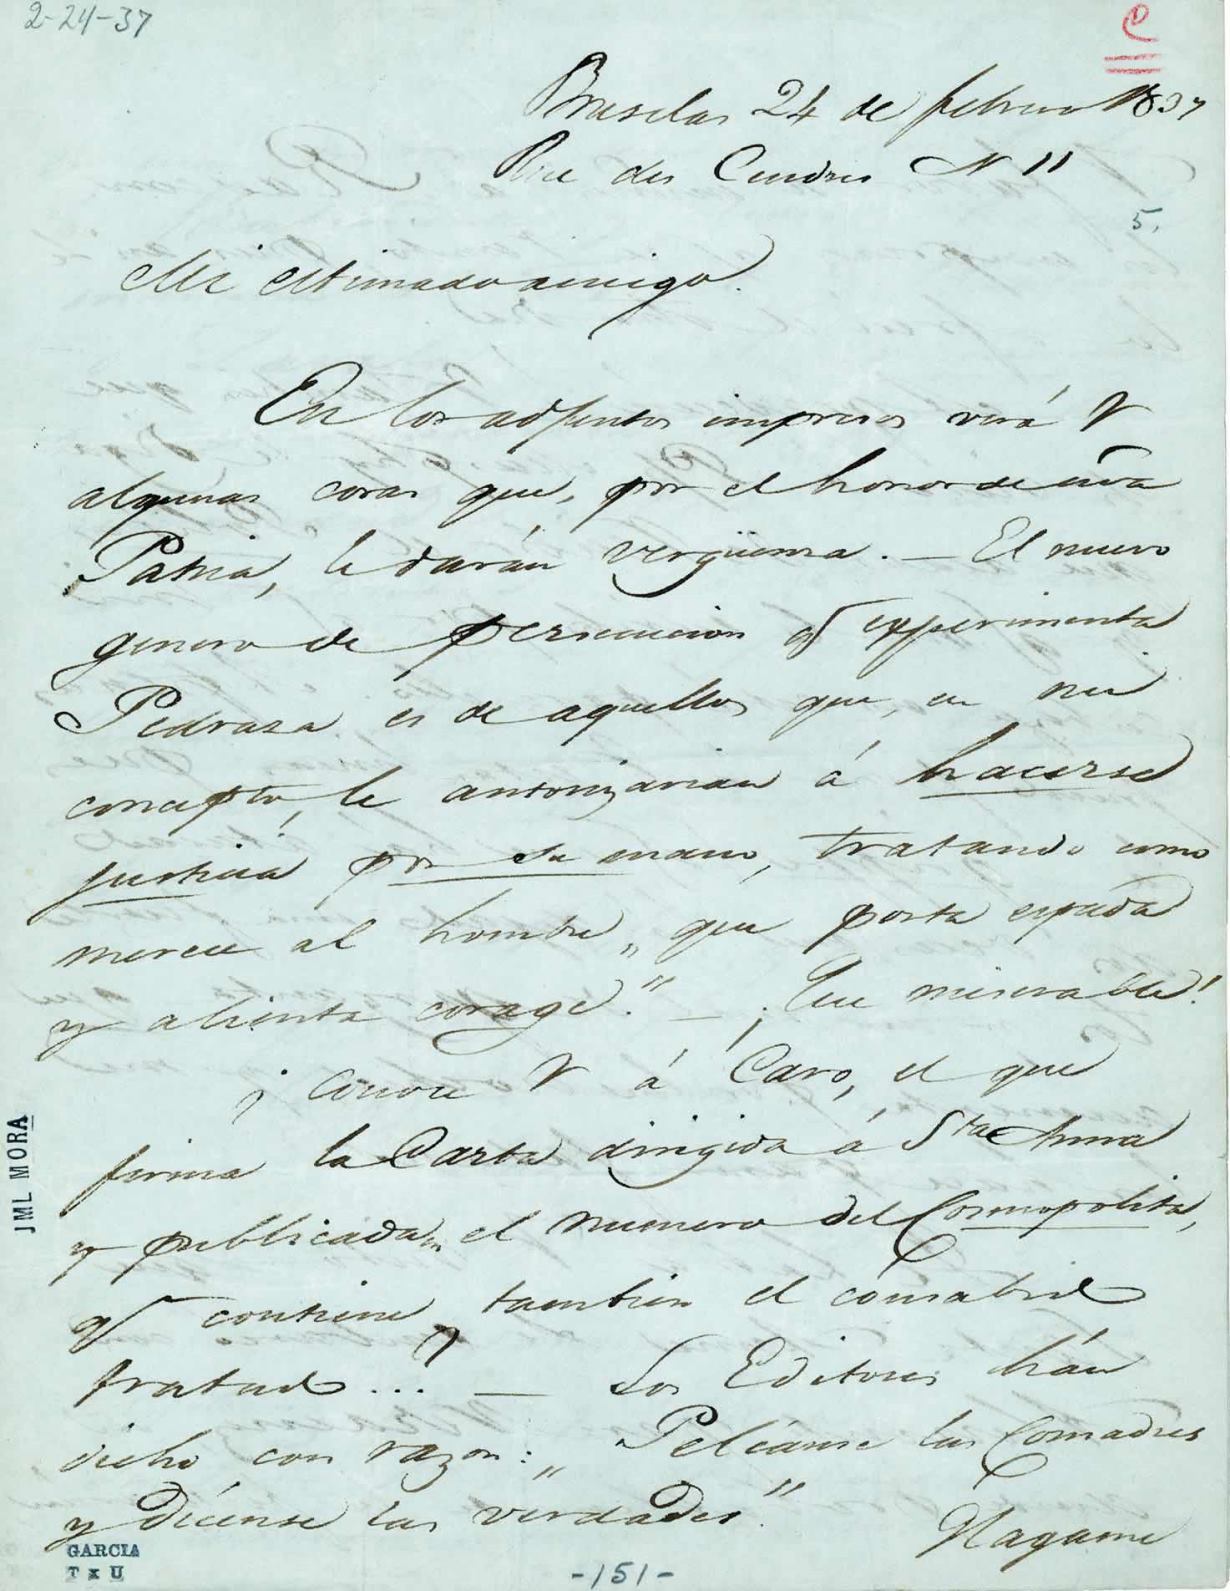 2-24-37
C
Bruselas 24 de febrero 1837
Rue des Cendres N 11
5.
Mi estimado amigo.
En los adjuntos impresos verá V
algunas cosas que, por el honor de nra
Patria, le darán vergüenza. — El nuevo
genero de persecucion q experimenta
Pedraza es de aquellos que, en mi
concepto, le autorizarian á hacerse
justicia por su mano, tratando como
merece al hombre „ que porta espada
y alienta corage." — ¡Que miserable!
¿ Conoce V á Caro, el que
firma la Carta dirigida á Sta Anna
y publicada en el numero del Cosmopolita,
q contiene tambien el consabido
tratado...? — Los Editores hán
dicho con razon: „ Peléanse las Comadres
y Dícense las verdades."
Hagame
JML MORA
GARCIA
T x U
-151-